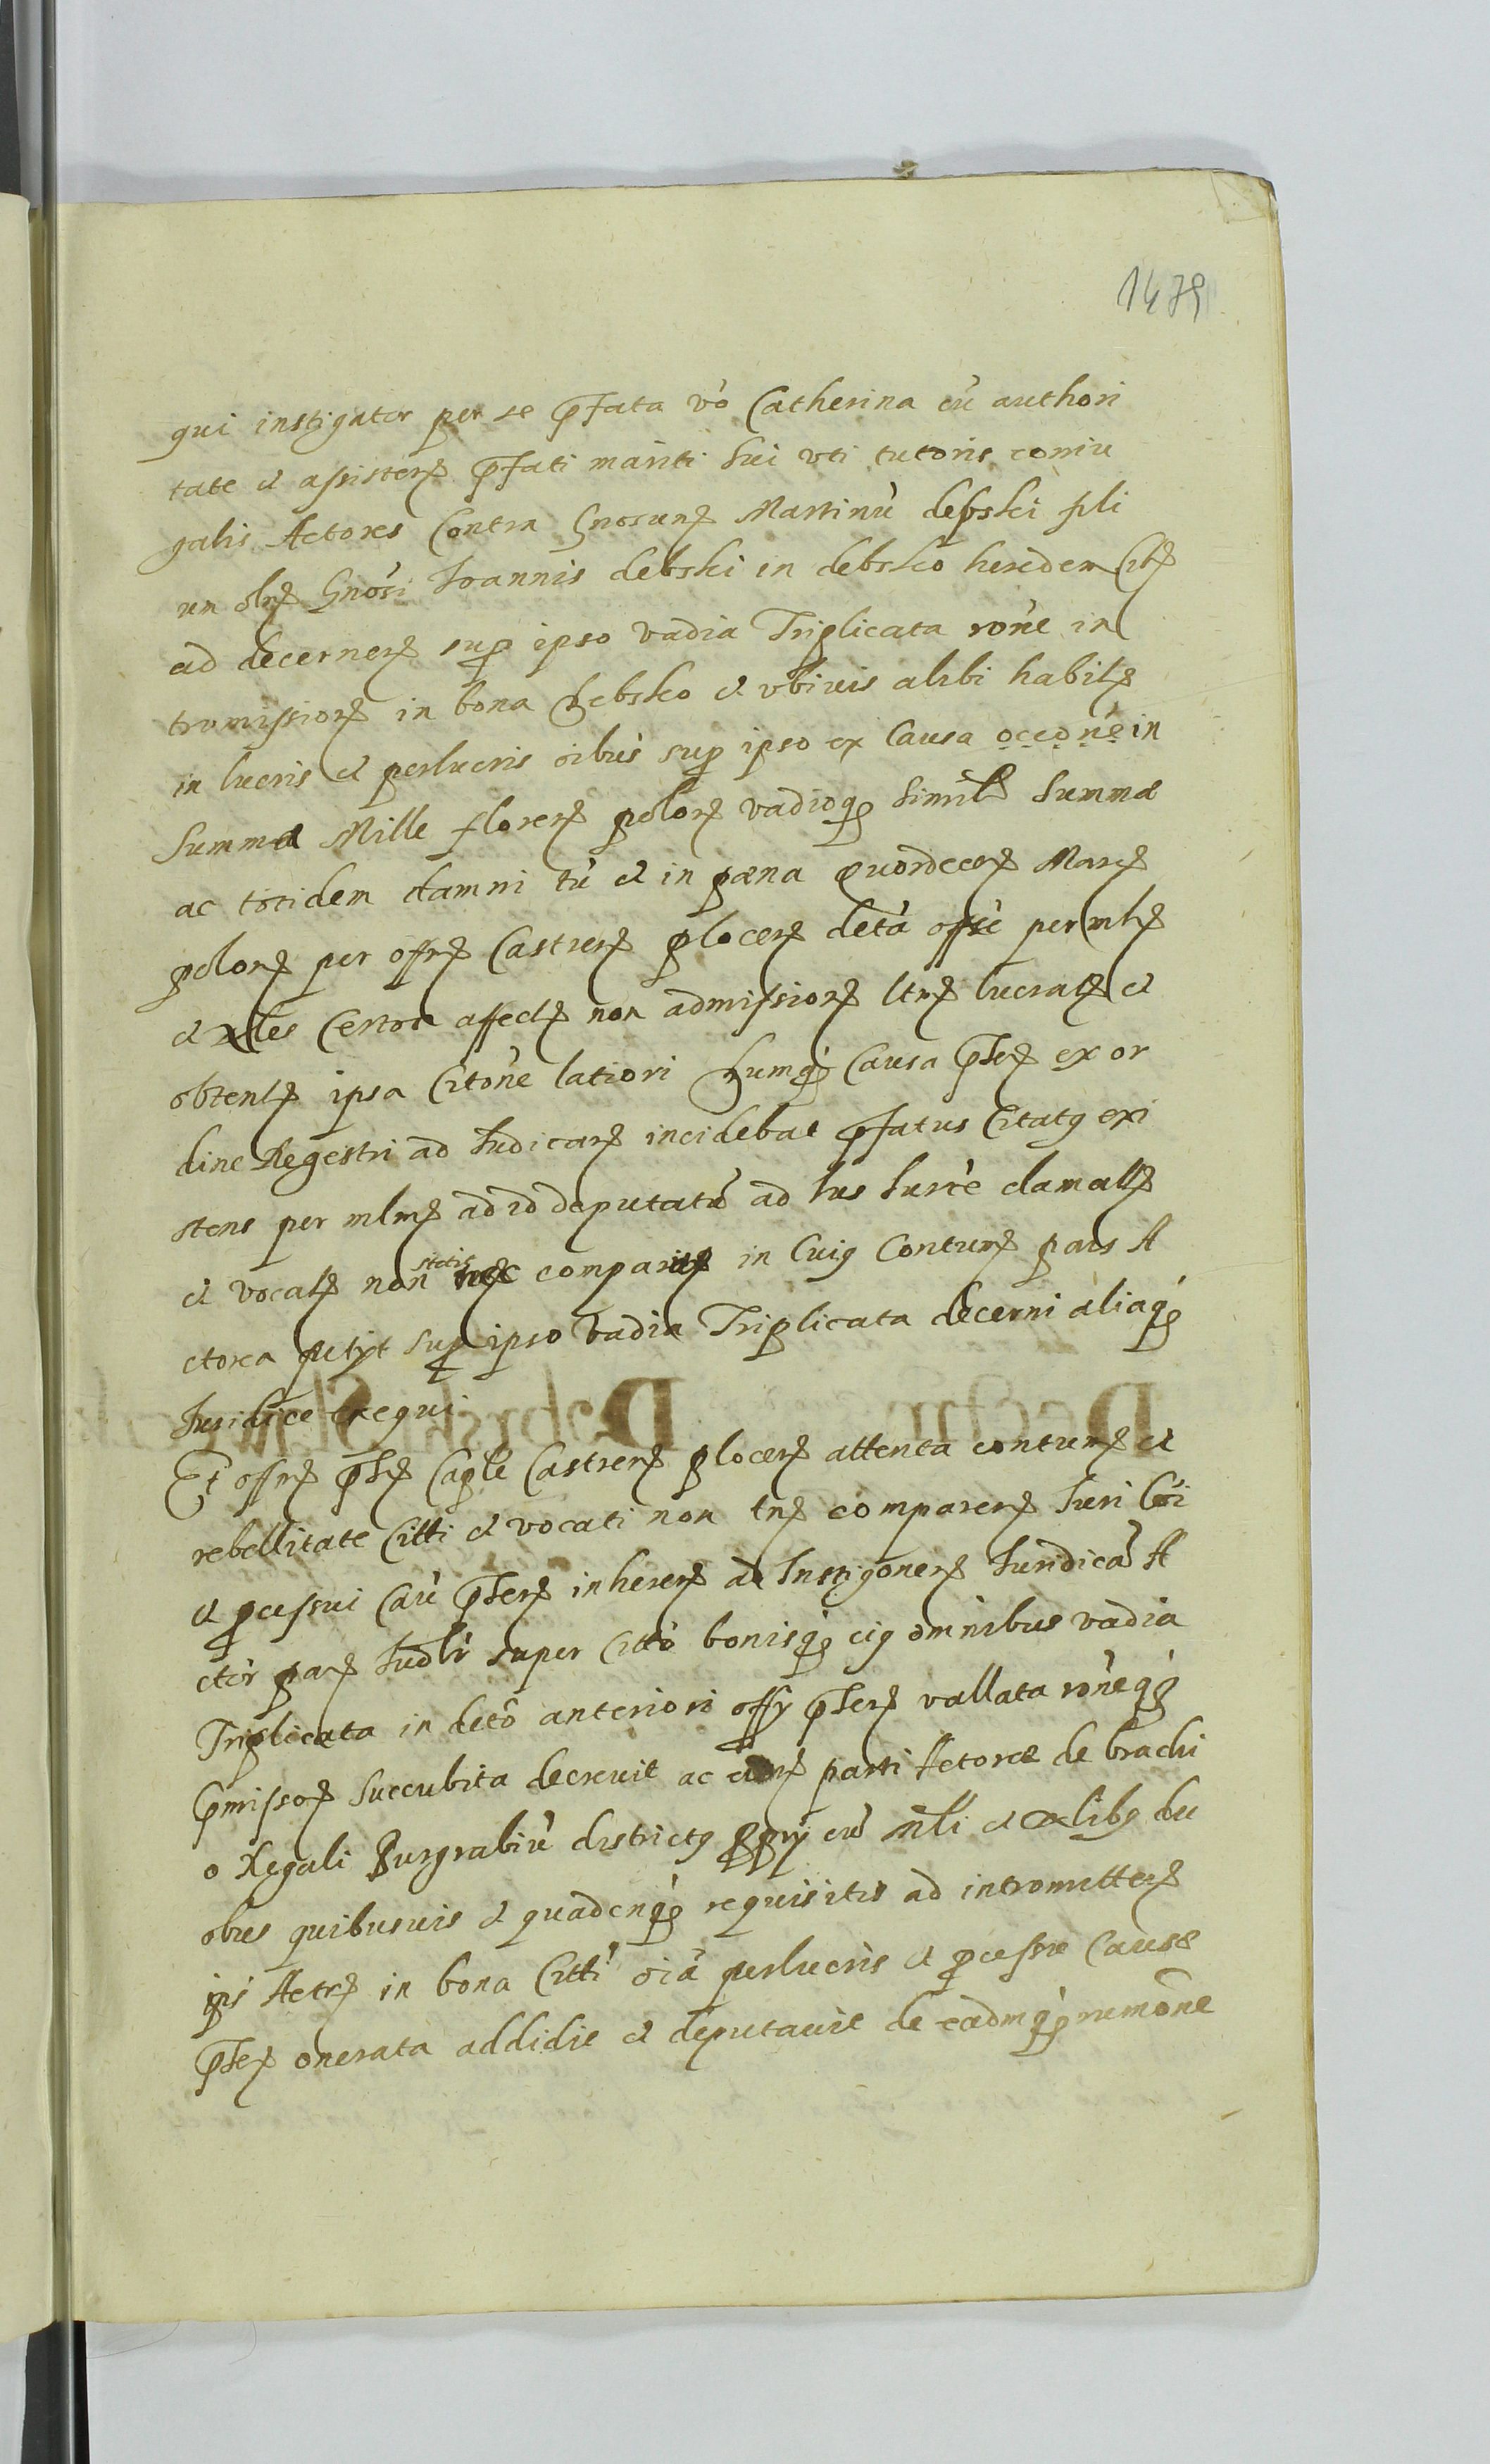 1479
qui instigator per se pfata vo Catherina cu authori
tate et assisten pfati mariti sui vti tutoris coniu
galis Actores Contra Gnosum Martinu debski fili
um olim Gnosi Joannis debski in debsko heredem Cit
ad decernen sup ipso vadia Triplicata rone in
tromission in bona Debsko et vbiuis alibi habit
in lucris et perlucris oibus sup ipso ex Causa occone in
Summa Mille floren polon vadioq simil Summæ
ac totidem damni tu et in pæna quordecem Marc
polon per offm Castren plocen deta offi per mlm
et nobiles Certor affect non admission ltm lucrat et
obtent ipsa Citone latiori Dumq Causa pns ex or
dine Regestri ad Judican incidebat pfatus Citatq exi
stens per mlm ad id deputatu ad Jus Jusre clamat
et vocat non stetit nec comparuit in Cuiq Contum pars A
ctorea petyt sup ipso vadia Triplicata decerni aliaq
Juridice exequi
Et offm pns Caple Castren plocen attenta contum et
rebellitate Citti et vocati non tn comparen Juri Coi
et pcessui Cau pnsen inheren ad Instigonem Juridica A
ctor par Judlr super Citto bonisq eiq omnibus vadia
Triplicata in deto anteriori offy pnsen vallata roneq
pmissor Succubita decreuit ac eidem parti Actoreæ de brachi
o Regali Burgrabiu districtq ppriy cu mli et nobilibq du
obus quibusuis et quadcnq requisitis ad intromitten
ips Actrm in bona Citti oia perlucris et pcessu Causæ
pnsen onerata addidit et deputauit de eadmq rumone